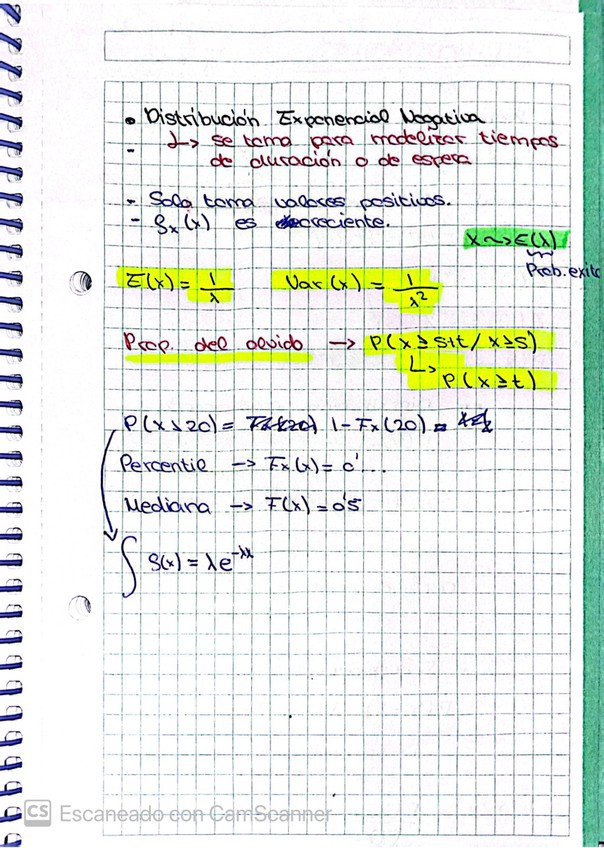 • Distribución Exponencial Negativa
- ↳ se toma para modelizar tiempos
de duración o de espera
- Solo toma valores positivos.
- fx(x) es decreciente.
X ~> E(λ)
Prob. exito
E(x) = 1/λ Var(x) = 1/λ²
Prop. del olvido → P(x ≥ s+t / x ≥ s)
↳ P(x ≥ t)
P(x > 20) = 1 - Fx(20) =
Percentil → Fx(x) = 0'...
Mediana → F(x) = 0'5
∫ f(x) = λe^-λx
CS Escaneado con CamScanner